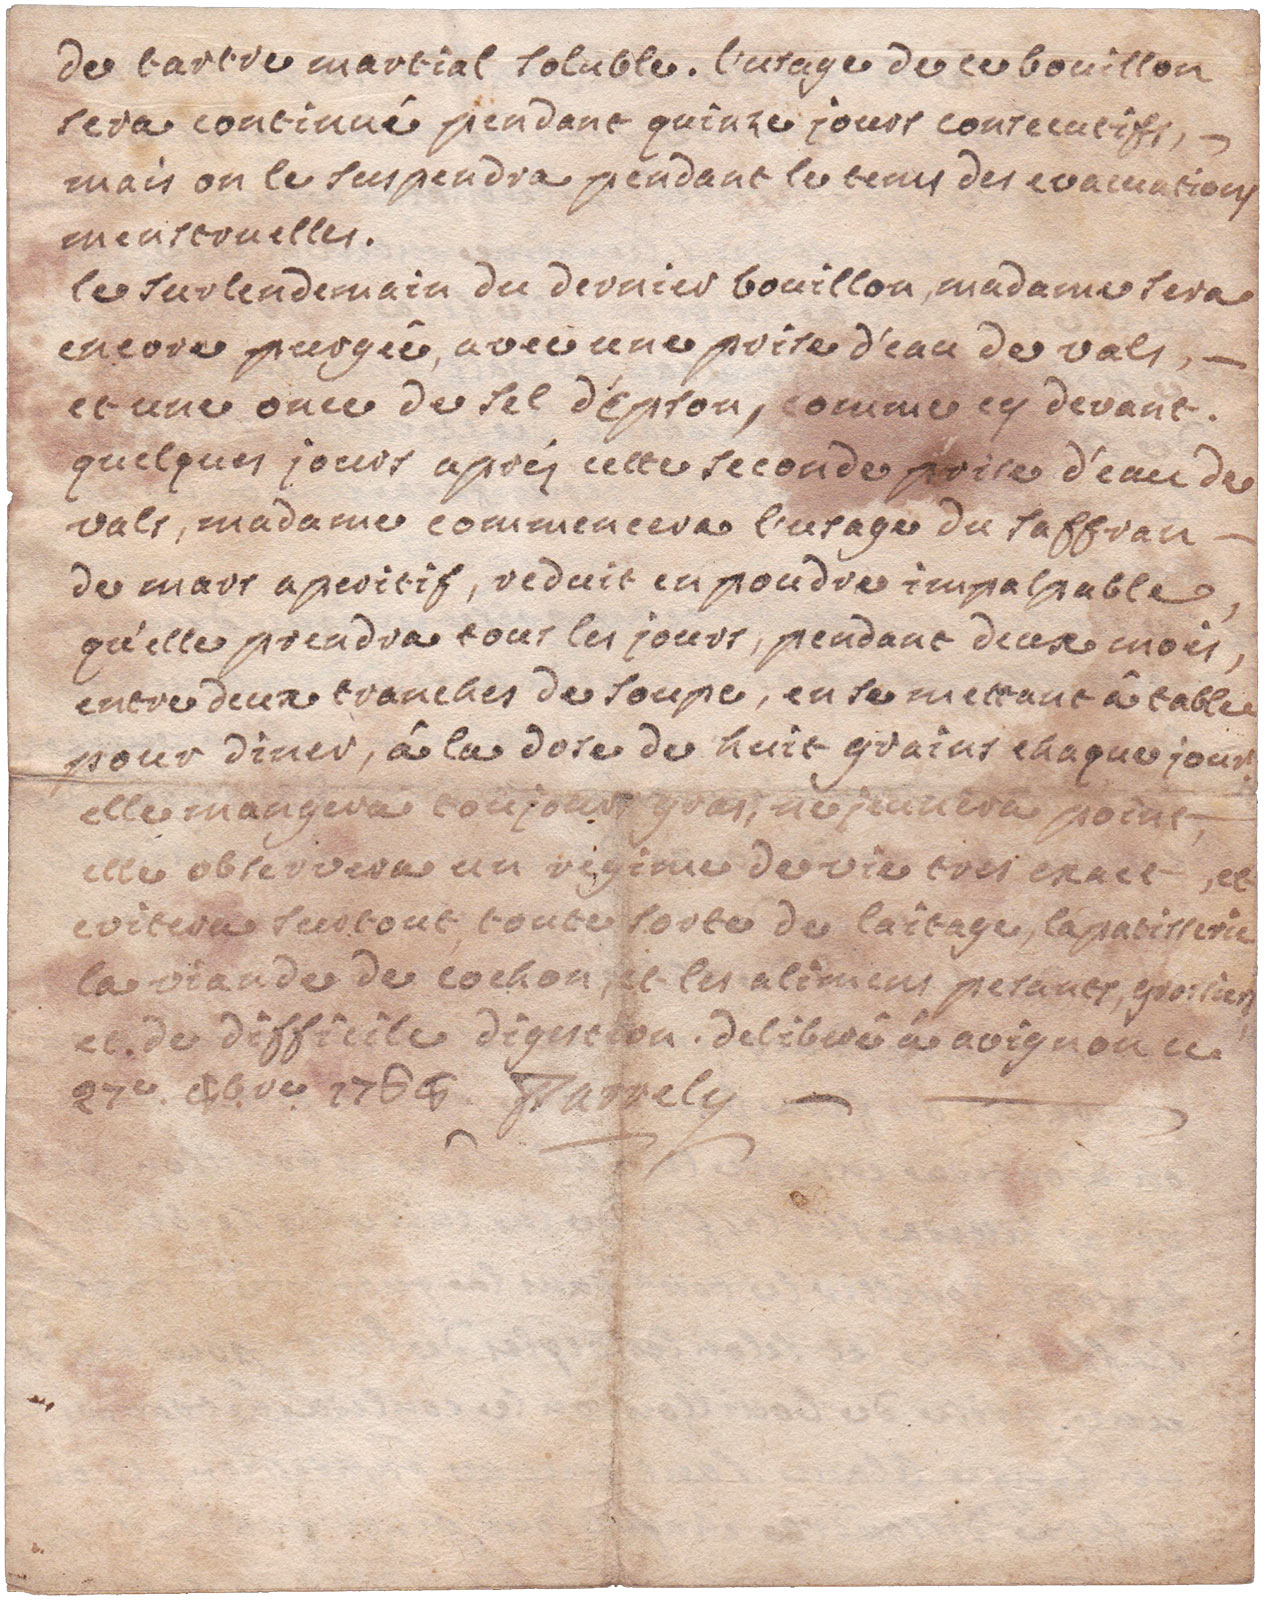 de tartre martial soluble. l'usage de ce bouillon
sera continué pendant quinze jours consecutifs, –
mais on le suspendra pendant le tems des evacuations
menstruelles.
le surlendemain du dernier bouillon, madame sera
encore purgée, avec une prise d'eau de vals, –
et une once de sel d'Epson, comme cy devant.
quelques jours aprés cette seconde prise d'eau de
vals, madame commencera l'usage du saffran –
de mars aperitif, reduit en poudre impalpable,
qu'elle prendra tous les jours, pendant deux mois,
entre deux tranches de soupe, en se mettant â table
pour diner, â la dose de huit grains chaque jour.
elle mangera toujours gras, ne jeunera point,
elle observera un régime de vie tres exact, et
evitera surtout, toute sorte de laitage, la patisserie
la viande de cochon, et les alimens pesants, grossiers,
et de difficile digestion. deliberé â avignon ce
27e. 8bre. 1766. Parrely